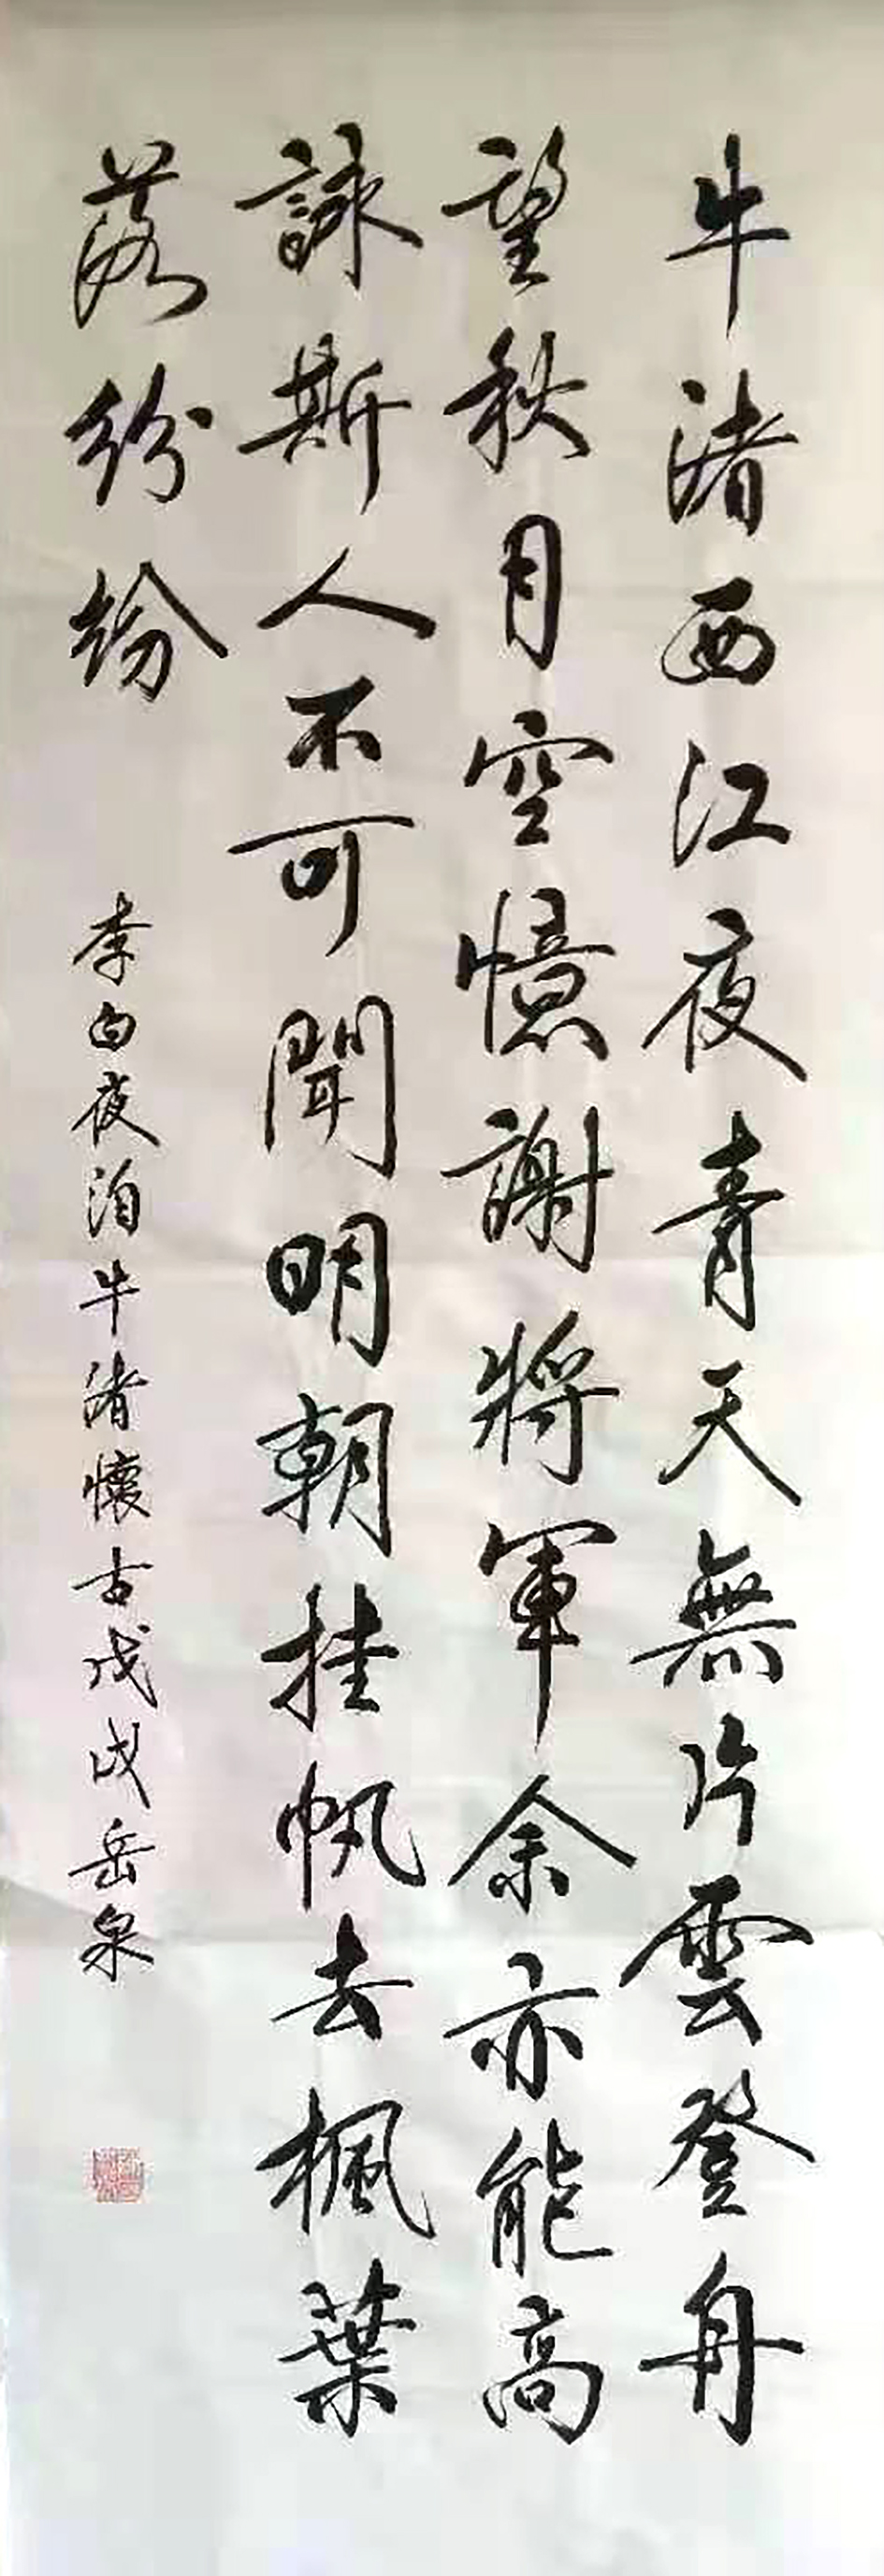 牛渚西江夜青天無片雲登舟
望秋月空憶謝將軍余亦能高
詠斯人不可聞明朝挂帆去楓葉
落紛紛
李白夜泊牛渚懷古戊戌岳泉